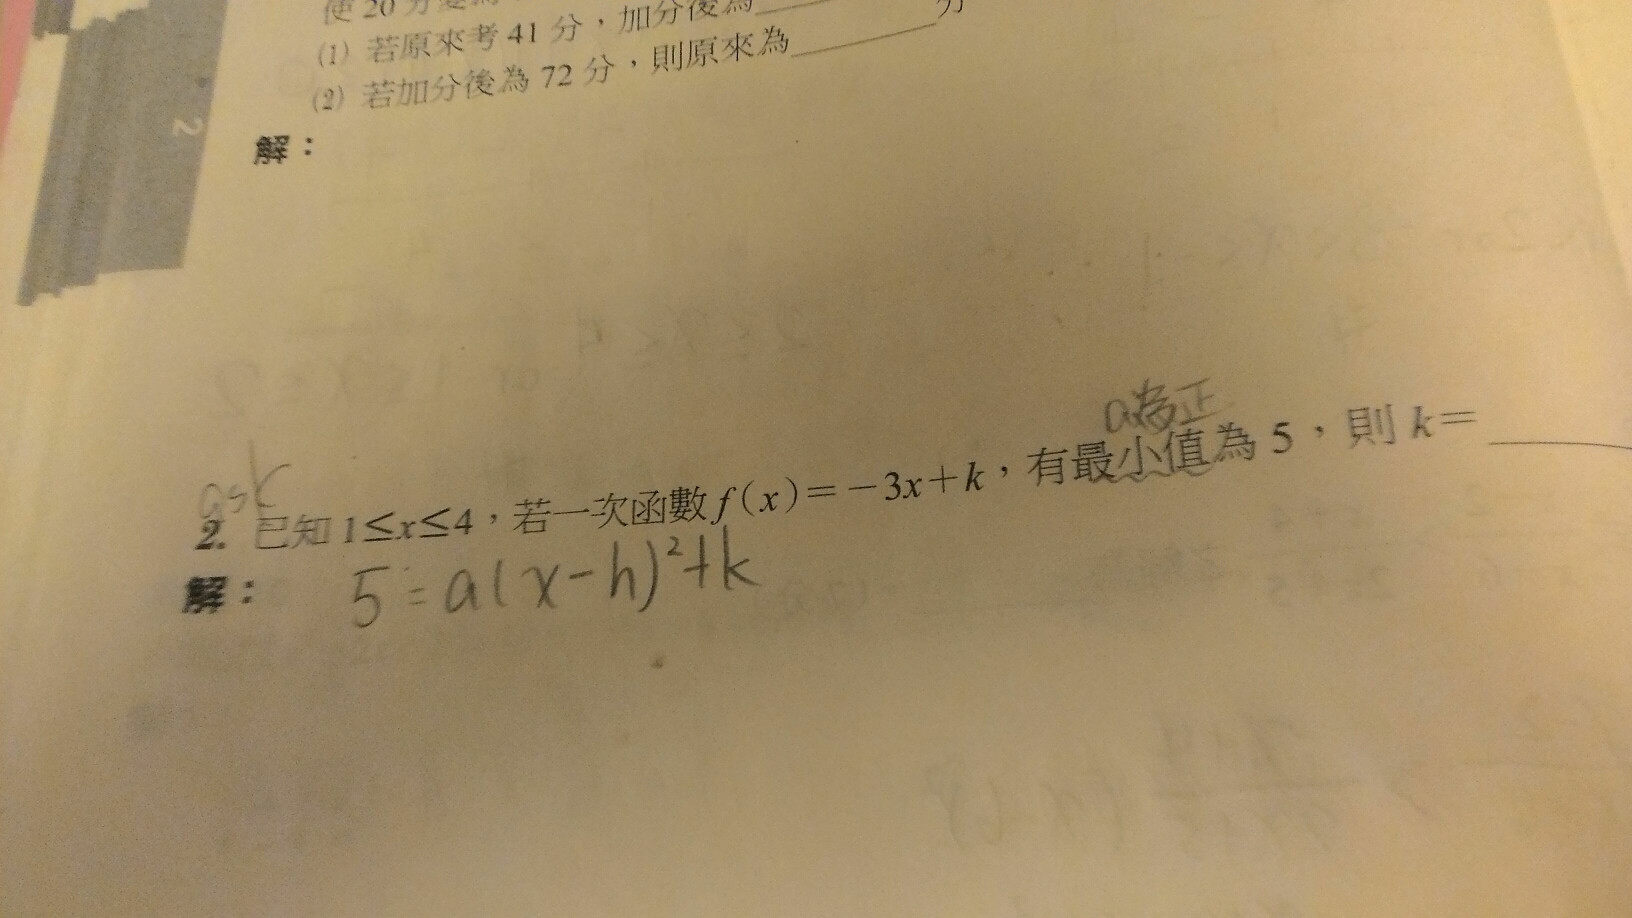 使 20 分
(1) 若原來考 41 分，加分後為______分
(2) 若加分後為 72 分，則原來為______
解：
2
a為正
ask
2. 已知 1≤x≤4，若一次函數 f(x)=-3x+k，有最小值為 5，則 k=______
解： 5=a(x-h)²+k